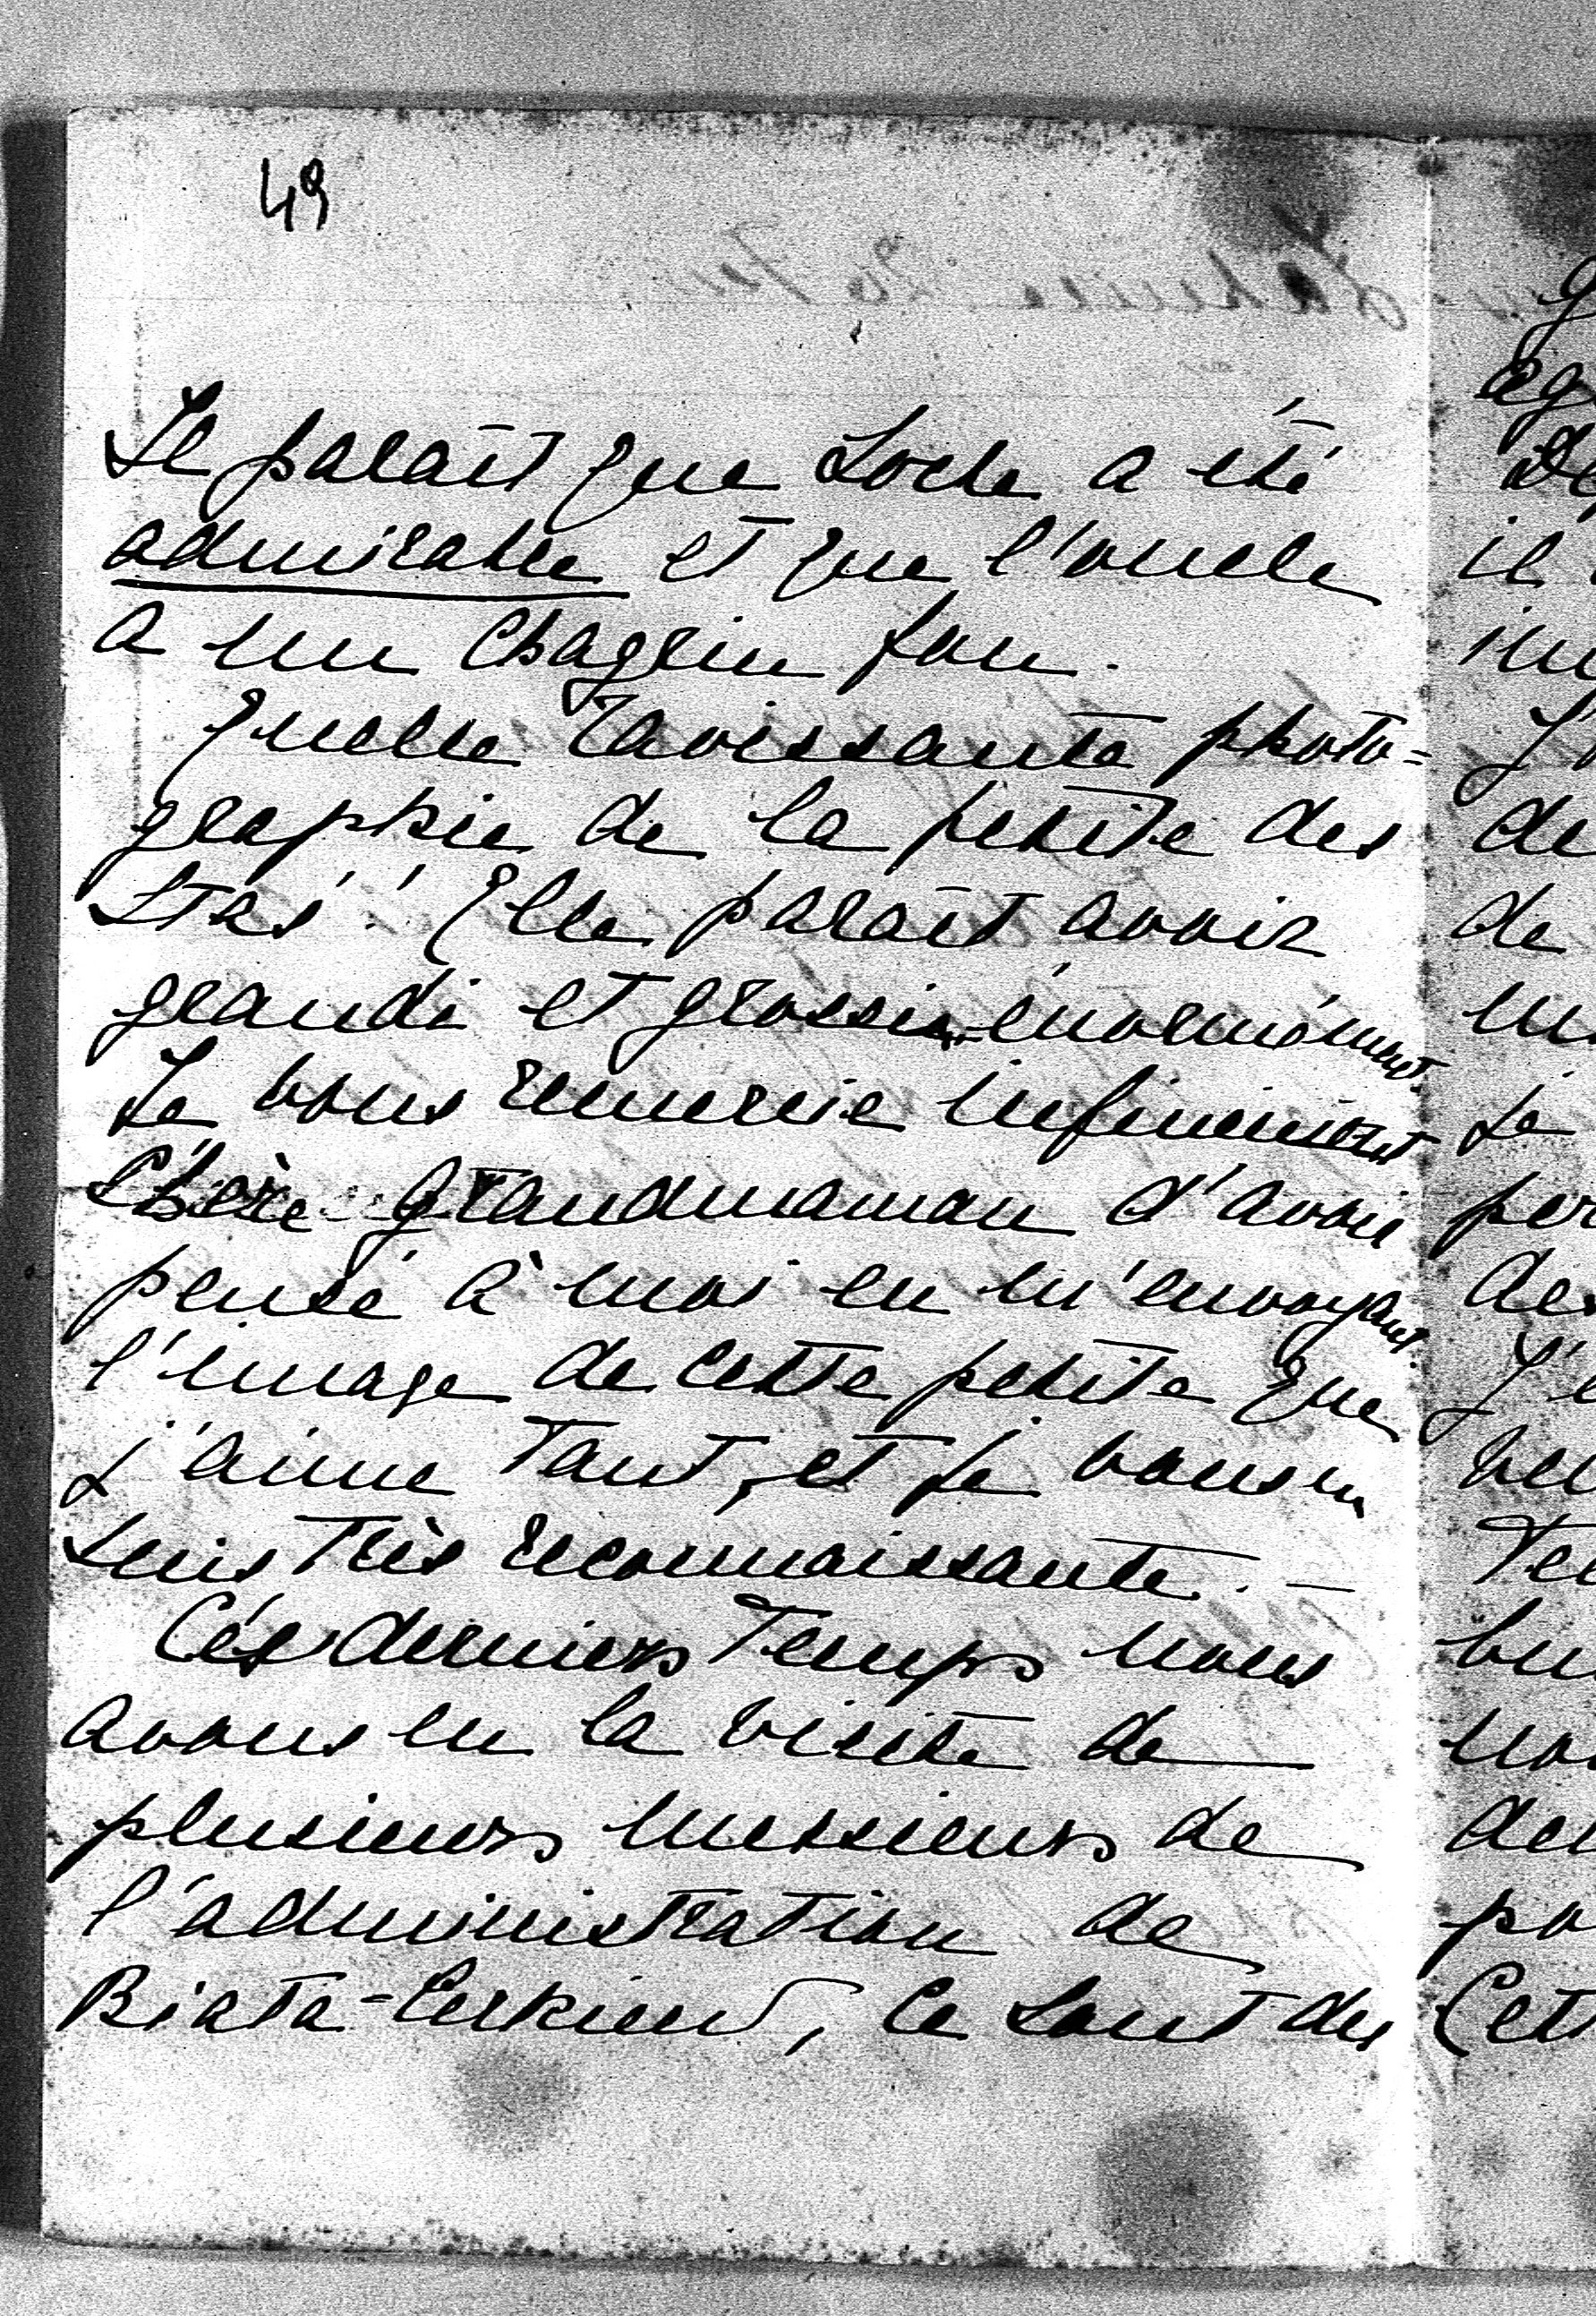 49
Il paraît que Loche a été
admirable et que l'oncle
a un chagrin fou.
Quelle ravissante photo=
graphie de la petite des
Stas! Elle paraît avoir
grandi et grossi énormément.
Je vous remercie infiniment
chère grandmaman d'avoir
pensé à moi en m'envoyant
l'image de cette petite que
j'aime tant, et je vous en
suis très reconnaissante. —
Ces derniers temps nous
avons eu la visite de
plusieurs messieurs de
l'administration de
Biała-Cerkiew, ce sont des